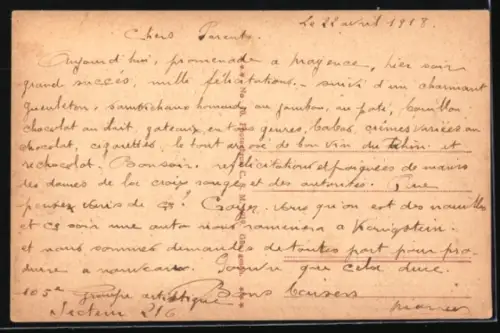 Le 22 avril 1918.
Chers Parents.
Aujourd'hui, promenade a mayence, hier soir
grand succés, mille félicitations. - suivi d'un charmant
gueuleton, sandwichs hommard au jambon, au paté, bouillon
chocolat au lait, gateaux, en tous genres, babas, crèmes variées au
chocolat, cigarettes, le tout arrosé de bon vin du Rhin et
rechocolat. Bonsoir. refélicitations et poignées de mains
les dames de la croix rouge et des autorités. Que
pensez vous de Crois vous qu'on est des
et ce soir une auto nous ramenera a Kœnigstein.
et nous sommes demandés de toutes part pour pro-
duire a nouveau. Pourvu que cela dure.
105e Groupe artistique Bons baisers
Secteur 216